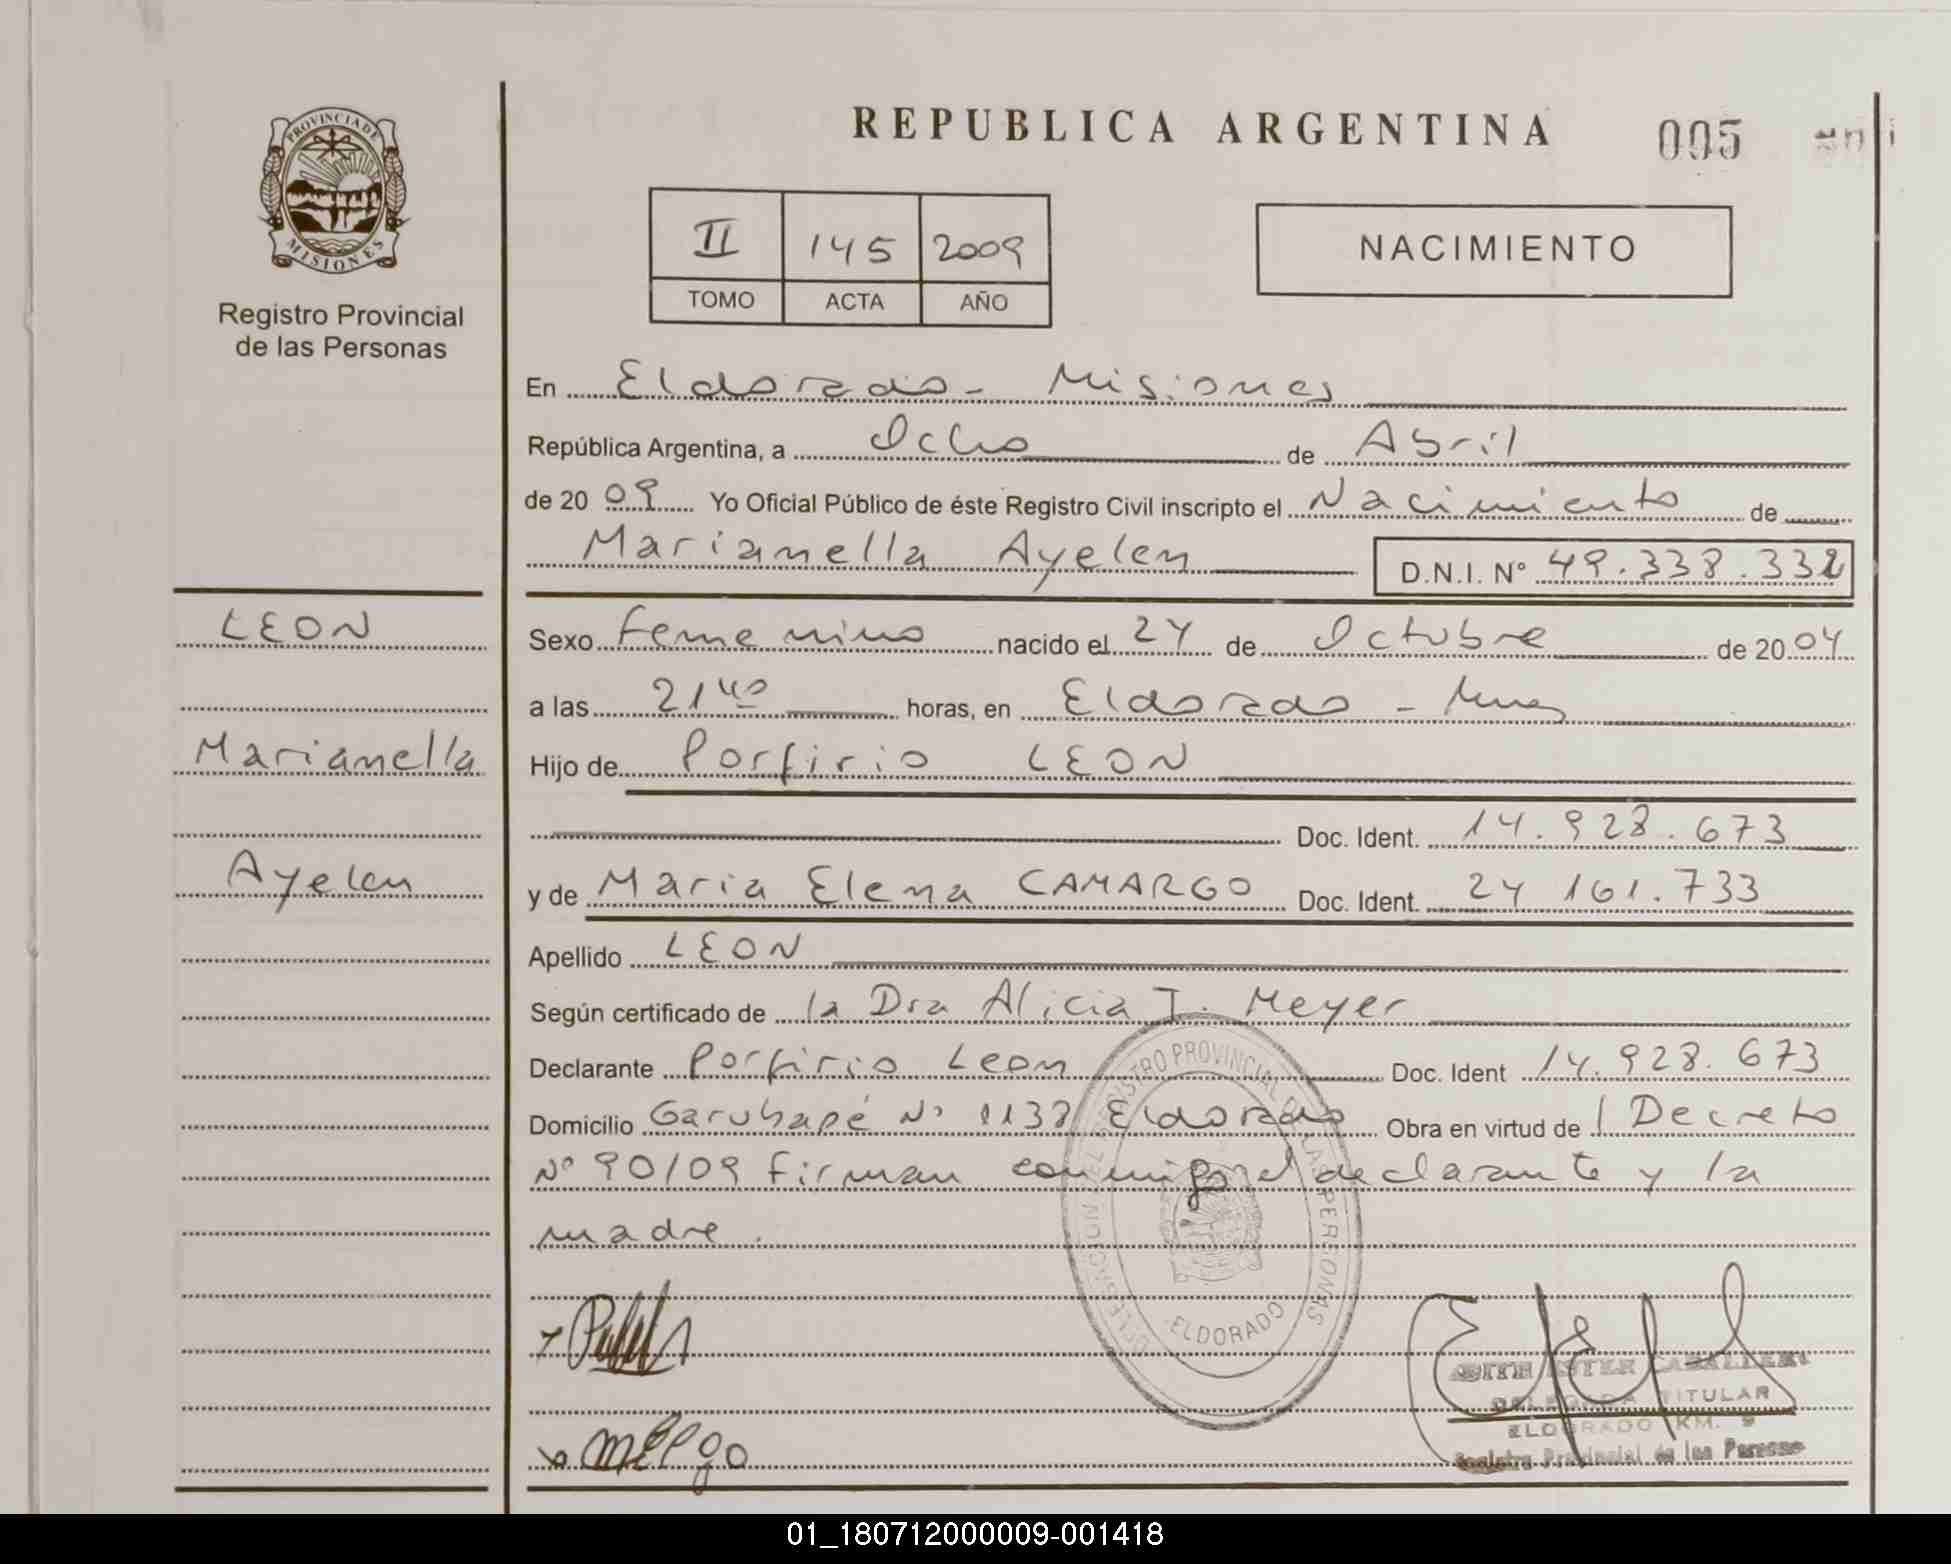 PROVINCIA DE
MISIONES
Registro Provincial
de las Personas
LEON
Marianella
Ayelen
REPUBLICA ARGENTINA
005
II 145 2009
TOMO ACTA AÑO
NACIMIENTO
En Eldorado - Misiones
República Argentina, a Ocho de Abril
de 2009 Yo Oficial Público de éste Registro Civil inscripto el Nacimiento de
Marianella Ayelen D.N.I. Nº 49.338.332
Sexo Femenino nacido el 24 de Octubre de 2004
a las 21 40 horas, en Eldorado - Mnes
Hijo de Porfirio LEON
Doc. Ident. 14.928.673
y de Maria Elena CAMARGO Doc. Ident. 24 161.733
Apellido LEON
Según certificado de la Dra Alicia T. Meyer
Declarante Porfirio Leon Doc. Ident 14.928.673
Domicilio Garuhapé Nº 1138 Eldorado Obra en virtud de Decreto
Nº 90/09 firman conmigo el declarante y la
madre.
DELEGACION DEL REGISTRO PROVINCIAL DE LAS PERSONAS
ELDORADO
DELEGADA TITULAR
ELDORADO KM. 9
Registro Provincial de las Personas
01_180712000009-001418